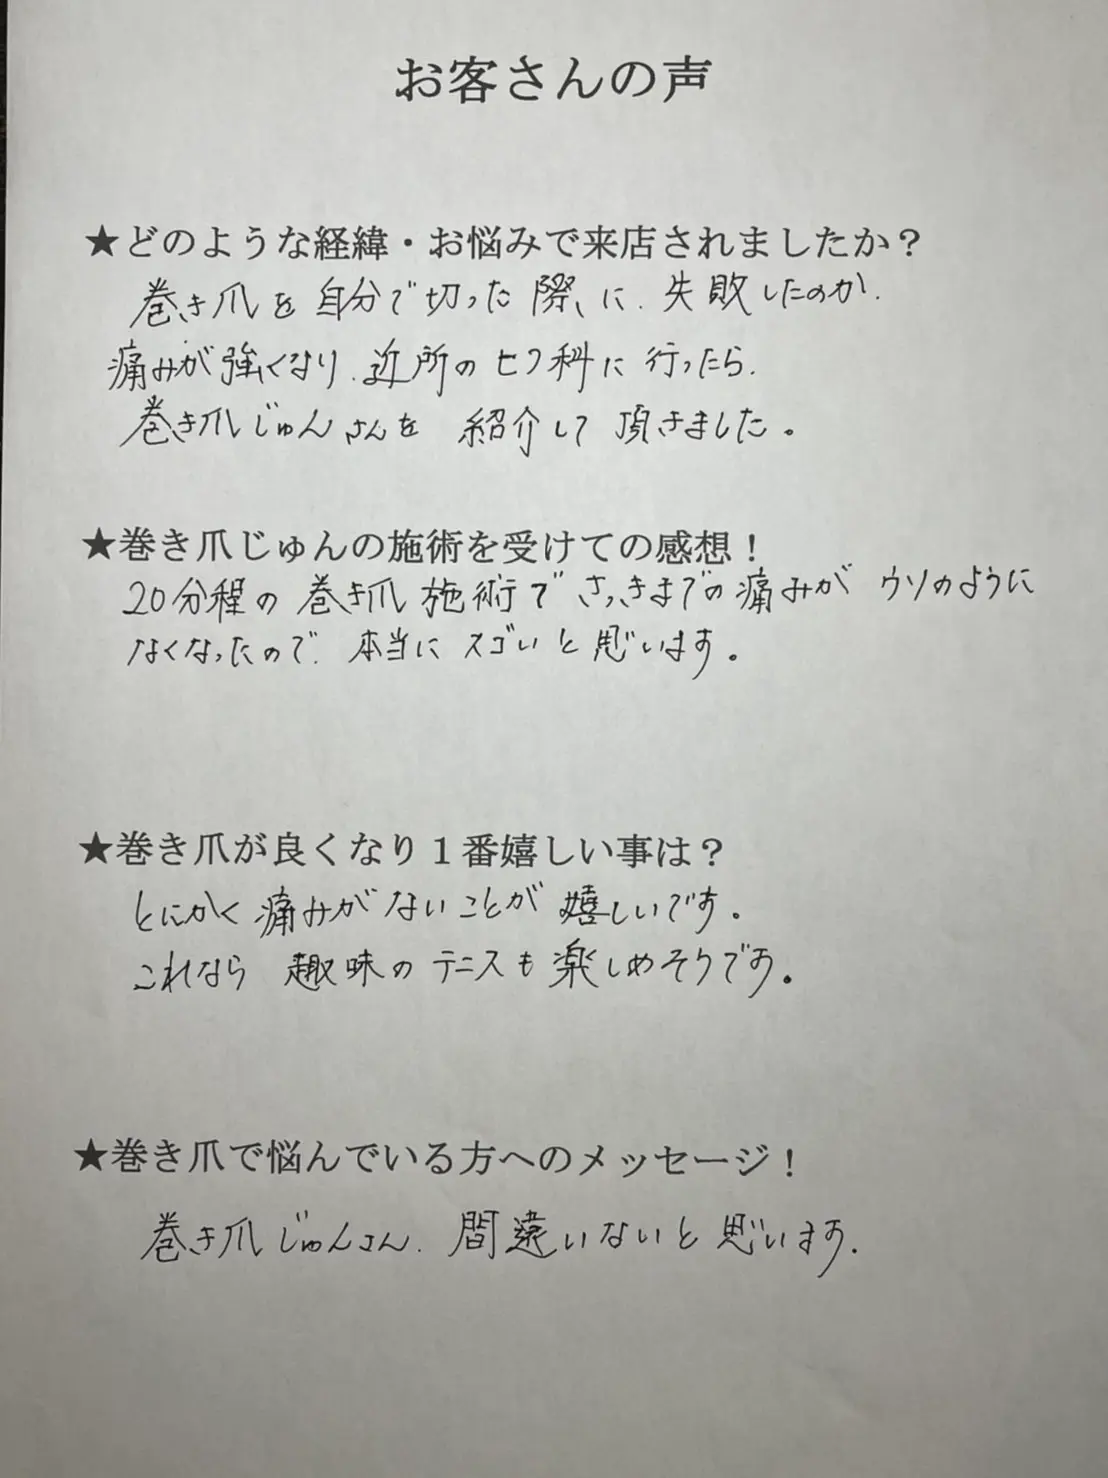 お客さんの声
★どのような経緯・お悩みで来店されましたか？
巻き爪を自分で切った際、に、失敗したのか、
痛みが強くなり、近所のヒフ科に行ったら、
巻き爪じゅんさんを紹介して頂きました。
★巻き爪じゅんの施術を受けての感想！
20分程の巻き爪施術でさっきまでの痛みがウソのように
なくなったので、本当にスゴいと思います。
★巻き爪が良くなり１番嬉しい事は？
とにかく痛みがないことが嬉しいです。
これなら趣味のテニスも楽しめそうです。
★巻き爪で悩んでいる方へのメッセージ！
巻き爪じゅんさん、間違いないと思います。